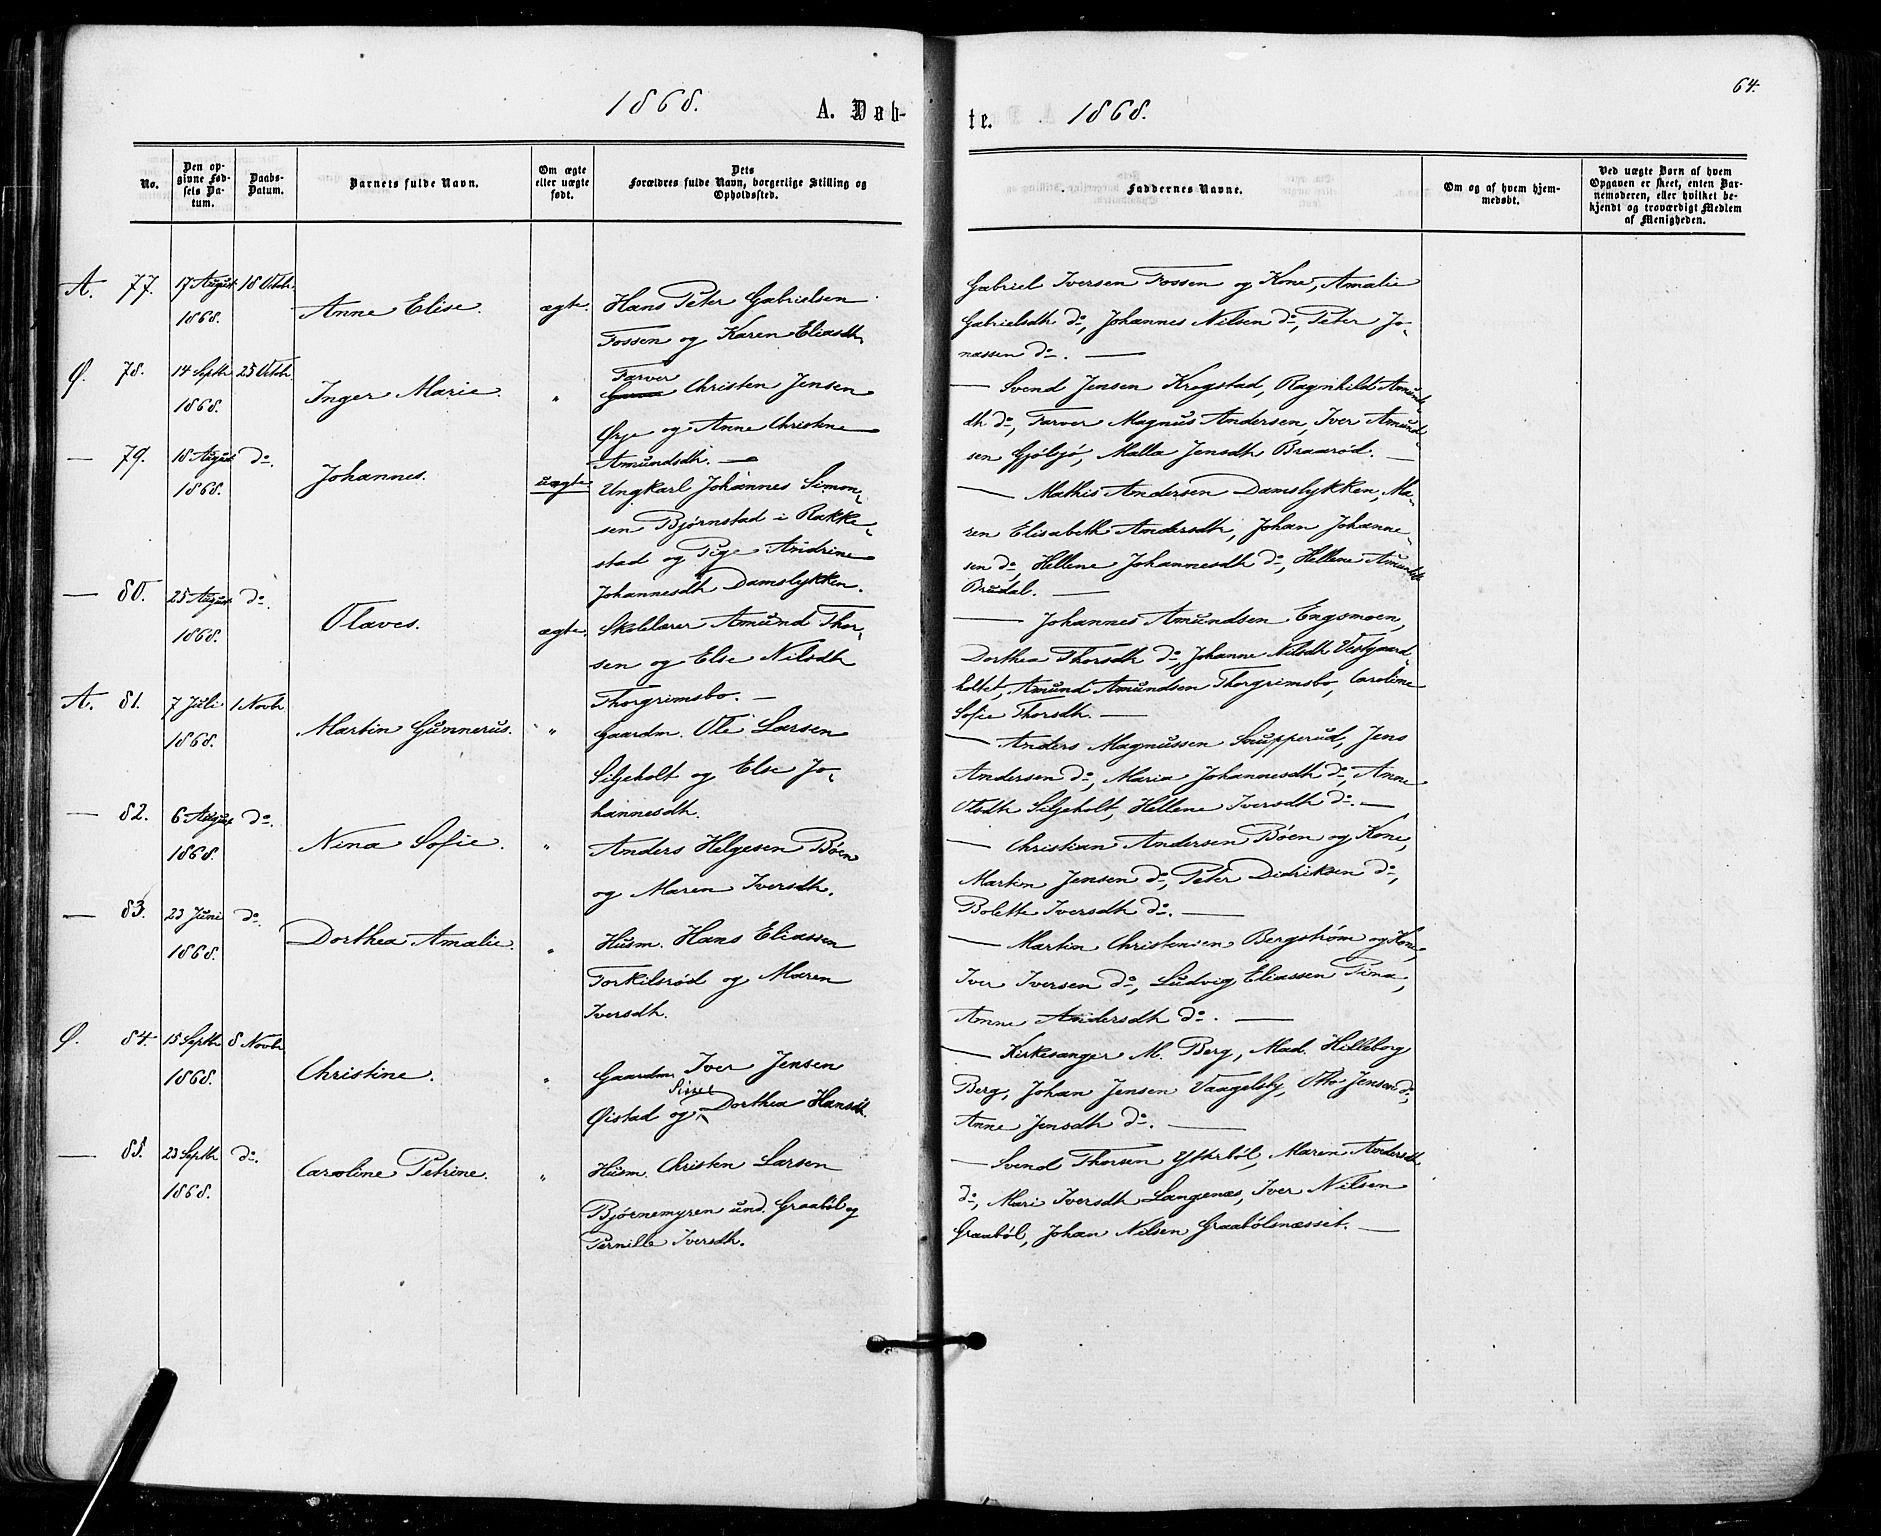 64.
1868. A. Døb-
te. 1868.
No.
Den op-
givne Fød-
sels Da-
tum.
Daabs-
Datum.
Barnets fulde Navn.
Om ægte
eller uægte
født.
Dets
Forældres fulde Navn, borgerlige Stilling og
Opholdssted.
Faddernes Navne.
Om og af hvem hjem-
medøbt.
Ved uægte Børn af hvem
Opgaven er skeet, enten Bar-
nemoderen, eller hvilket be-
kjendt og troværdigt Medlem
af Menigheden.
A. 77. 17 August 18 Octbr.
1868. Anne Elise. ægte. Hans Peter Gabrielsen
Fossen og Karen Eliasdh.
Gabriel Iversen Fossen og Kone, Amalie
Gabrielsdh do, Johannes Nilsen do, Peter Jo-
nassen do. —
Ø. 78. 14 Septbr 25 Octbr.
1868. Inger Marie. " Farver Christen Jensen
Ørje og Anne Christine
Amundsdh. —
— Svend Jensen Krogstad, Ragnhild Amunds-
dh do, Farver Magnus Andersen, Iver Amund-
sen Gjølsjø, Malla Jensdh Braarød. —
— 79. 18 August do.
1868. Johannes. uægte. Ungkarl Johannes Simon-
sen Bjørnstad i Rakke-
stad og Pige Andrine
Johannesdh Damslykken.
— Mathis Andersen Damslykken, Ma-
ren Elisabeth Andersdh, Johan Johanne-
sen do, Hellene Johannesdh do, Hellene Amundsdh
Brudal. —
— 80. 25 August do.
1868. Olaves. ægte. Skolelærer Amund Thor-
sen og Else Nilsdh
Thorgrimsbo. —
— Johannes Amundsen Engsmoen,
Dorthea Thorsdh do, Johanne Nilsdh Vestgaard-
holtet, Amund Amundsen Thorgrimsbo, Caroline
Sofie Thorsdh. —
A. 81. 7 Juli 1 Novbr
1868. Martin Gunnerus. " Gaardm. Ole Larsen
Siljeholt og Else Jo-
hannesdh.
— Anders Magnussen Snupperud, Jens
Andersen do, Maria Johannesdh do, Anne
Olsdh Siljeholt, Hellene Iversdh do. —
— 82. 6 August do.
1868. Nina Sofie. " Anders Helgesen Bøen
og Maren Iversdh.
— Christian Andersen Bøen og Kone,
Martin Jensen do, Peter Didriksen do,
Bolette Iversdh do. —
— 83. 23 Juni do.
1868. Dorthea Amalie. " Husm. Hans Eliassen
Torkilsrød og Maren
Iversdh.
— Martin Christensen Bergstrøm og Kone,
Iver Iversen do, Ludvig Eliassen Tina,
Anne Andersdh do. —
Ø. 84. 15 Septbr 8 Novbr
1868. Christine. " Gaardm. Iver Jensen
Øistad og Sirre Dorthea Hansdh.
— Kirkesanger M. Berg, Mad. Hilleborg
Berg, Johan Jensen Vaagelsby, Otto Jensen do,
Anne Jensdh do. —
— 85. 23 Septbr do.
1868. Caroline Petrine. " Husm. Christen Larsen
Bjørnemyren und. Graabøl og
Pernille Iversdh.
— Svend Thorsen Ytterbøl, Maren Andersdh
do, Mari Iversdh Langenæs, Iver Nilsen
Graabøl, Johan Nilsen Graabølsnæsset. —